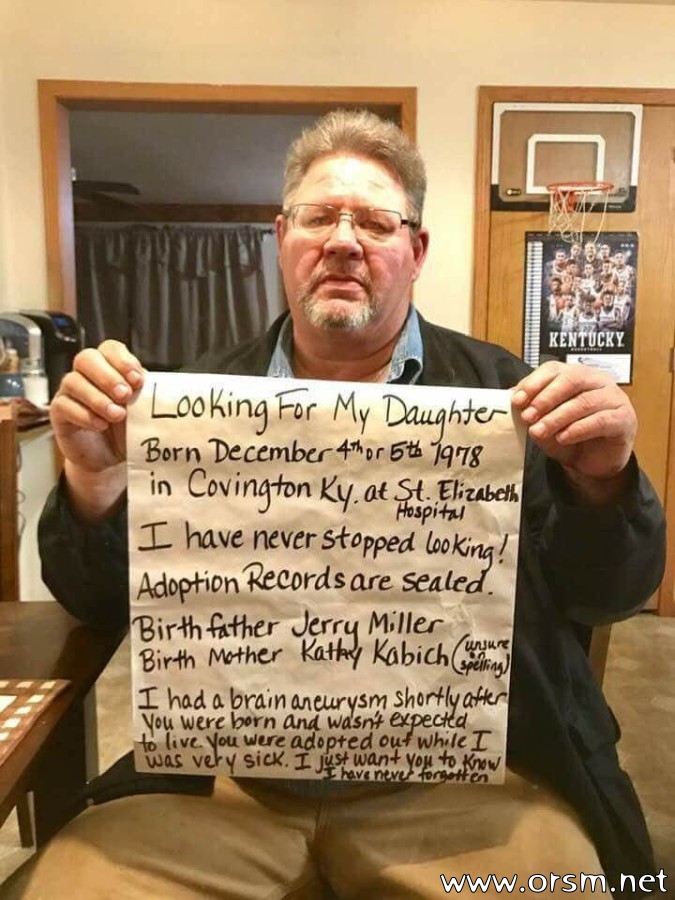 KENTUCKY
BASKETBALL
Looking For My Daughter
Born December 4th or 5th 1978
in Covington Ky. at St. Elizabeth
Hospital
I have never stopped looking!
Adoption Records are sealed.
Birth father Jerry Miller
Birth Mother Kathy Kabich (unsure on spelling)
I had a brain aneurysm shortly after
you were born and wasn't expected
to live. You were adopted out while I
was very sick. I just want you to know
I have never forgotten
www.orsm.net